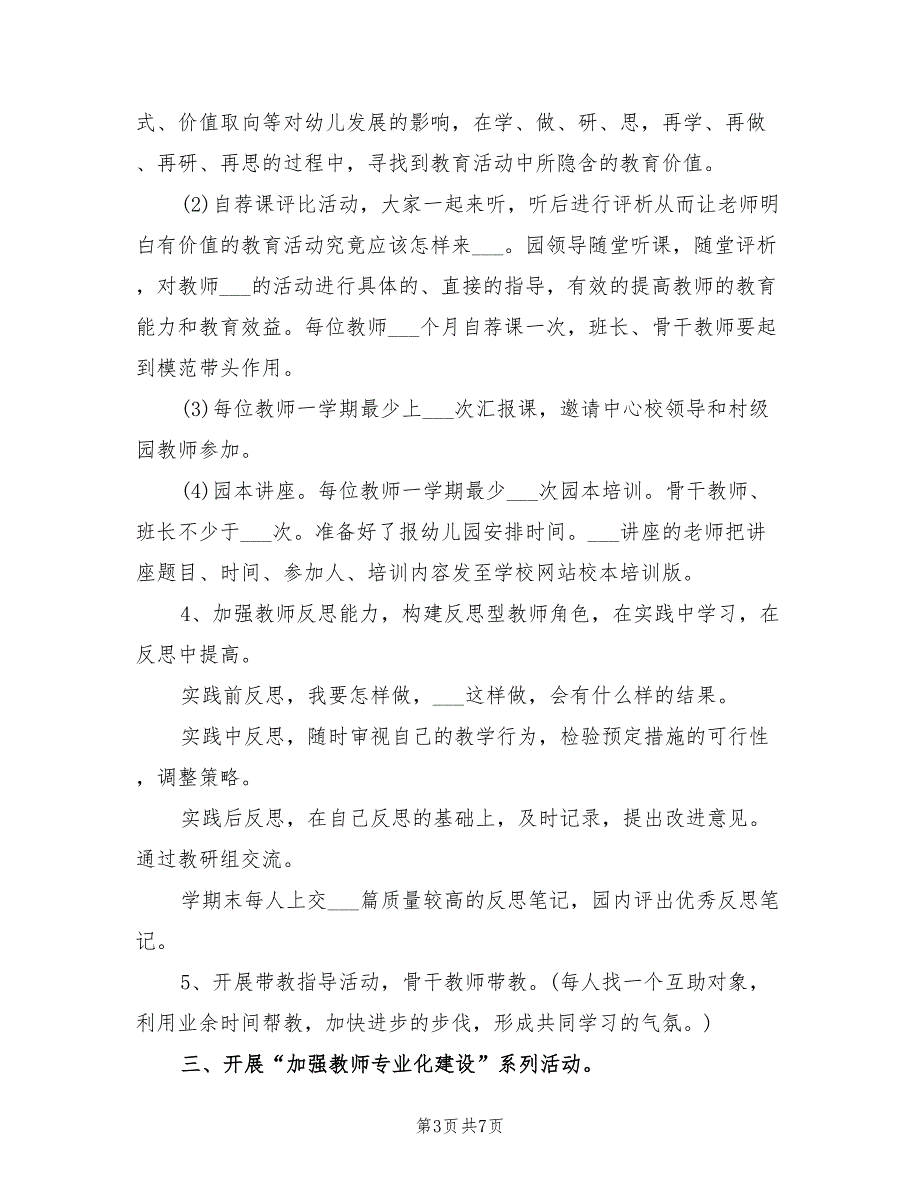 式、价值取向等对幼儿发展的影响，在学、做、研、思，再学、再做
、再研、再思的过程中，寻找到教育活动中所隐含的教育价值。
(2)自荐课评比活动，大家一起来听，听后进行评析从而让老师明
白有价值的教育活动究竟应该怎样来___。园领导随堂听课，随堂评析
，对教师___的活动进行具体的、直接的指导，有效的提高教师的教育
能力和教育效益。每位教师___个月自荐课一次，班长、骨干教师要起
到模范带头作用。
(3)每位教师一学期最少上___次汇报课，邀请中心校领导和村级
园教师参加。
(4)园本讲座。每位教师一学期最少___次园本培训。骨干教师、
班长不少于___次。准备好了报幼儿园安排时间。___讲座的老师把讲
座题目、时间、参加人、培训内容发至学校网站校本培训版。
4、加强教师反思能力，构建反思型教师角色，在实践中学习，在
反思中提高。
实践前反思，我要怎样做，___这样做，会有什么样的结果。
实践中反思，随时审视自己的教学行为，检验预定措施的可行性
，调整策略。
实践后反思，在自己反思的基础上，及时记录，提出改进意见。
通过教研组交流。
学期末每人上交___篇质量较高的反思笔记，园内评出优秀反思笔
记。
5、开展带教指导活动，骨干教师带教。(每人找一个互助对象，
利用业余时间帮教，加快进步的步伐，形成共同学习的气氛。)
三、开展“加强教师专业化建设”系列活动。
第3页共7页